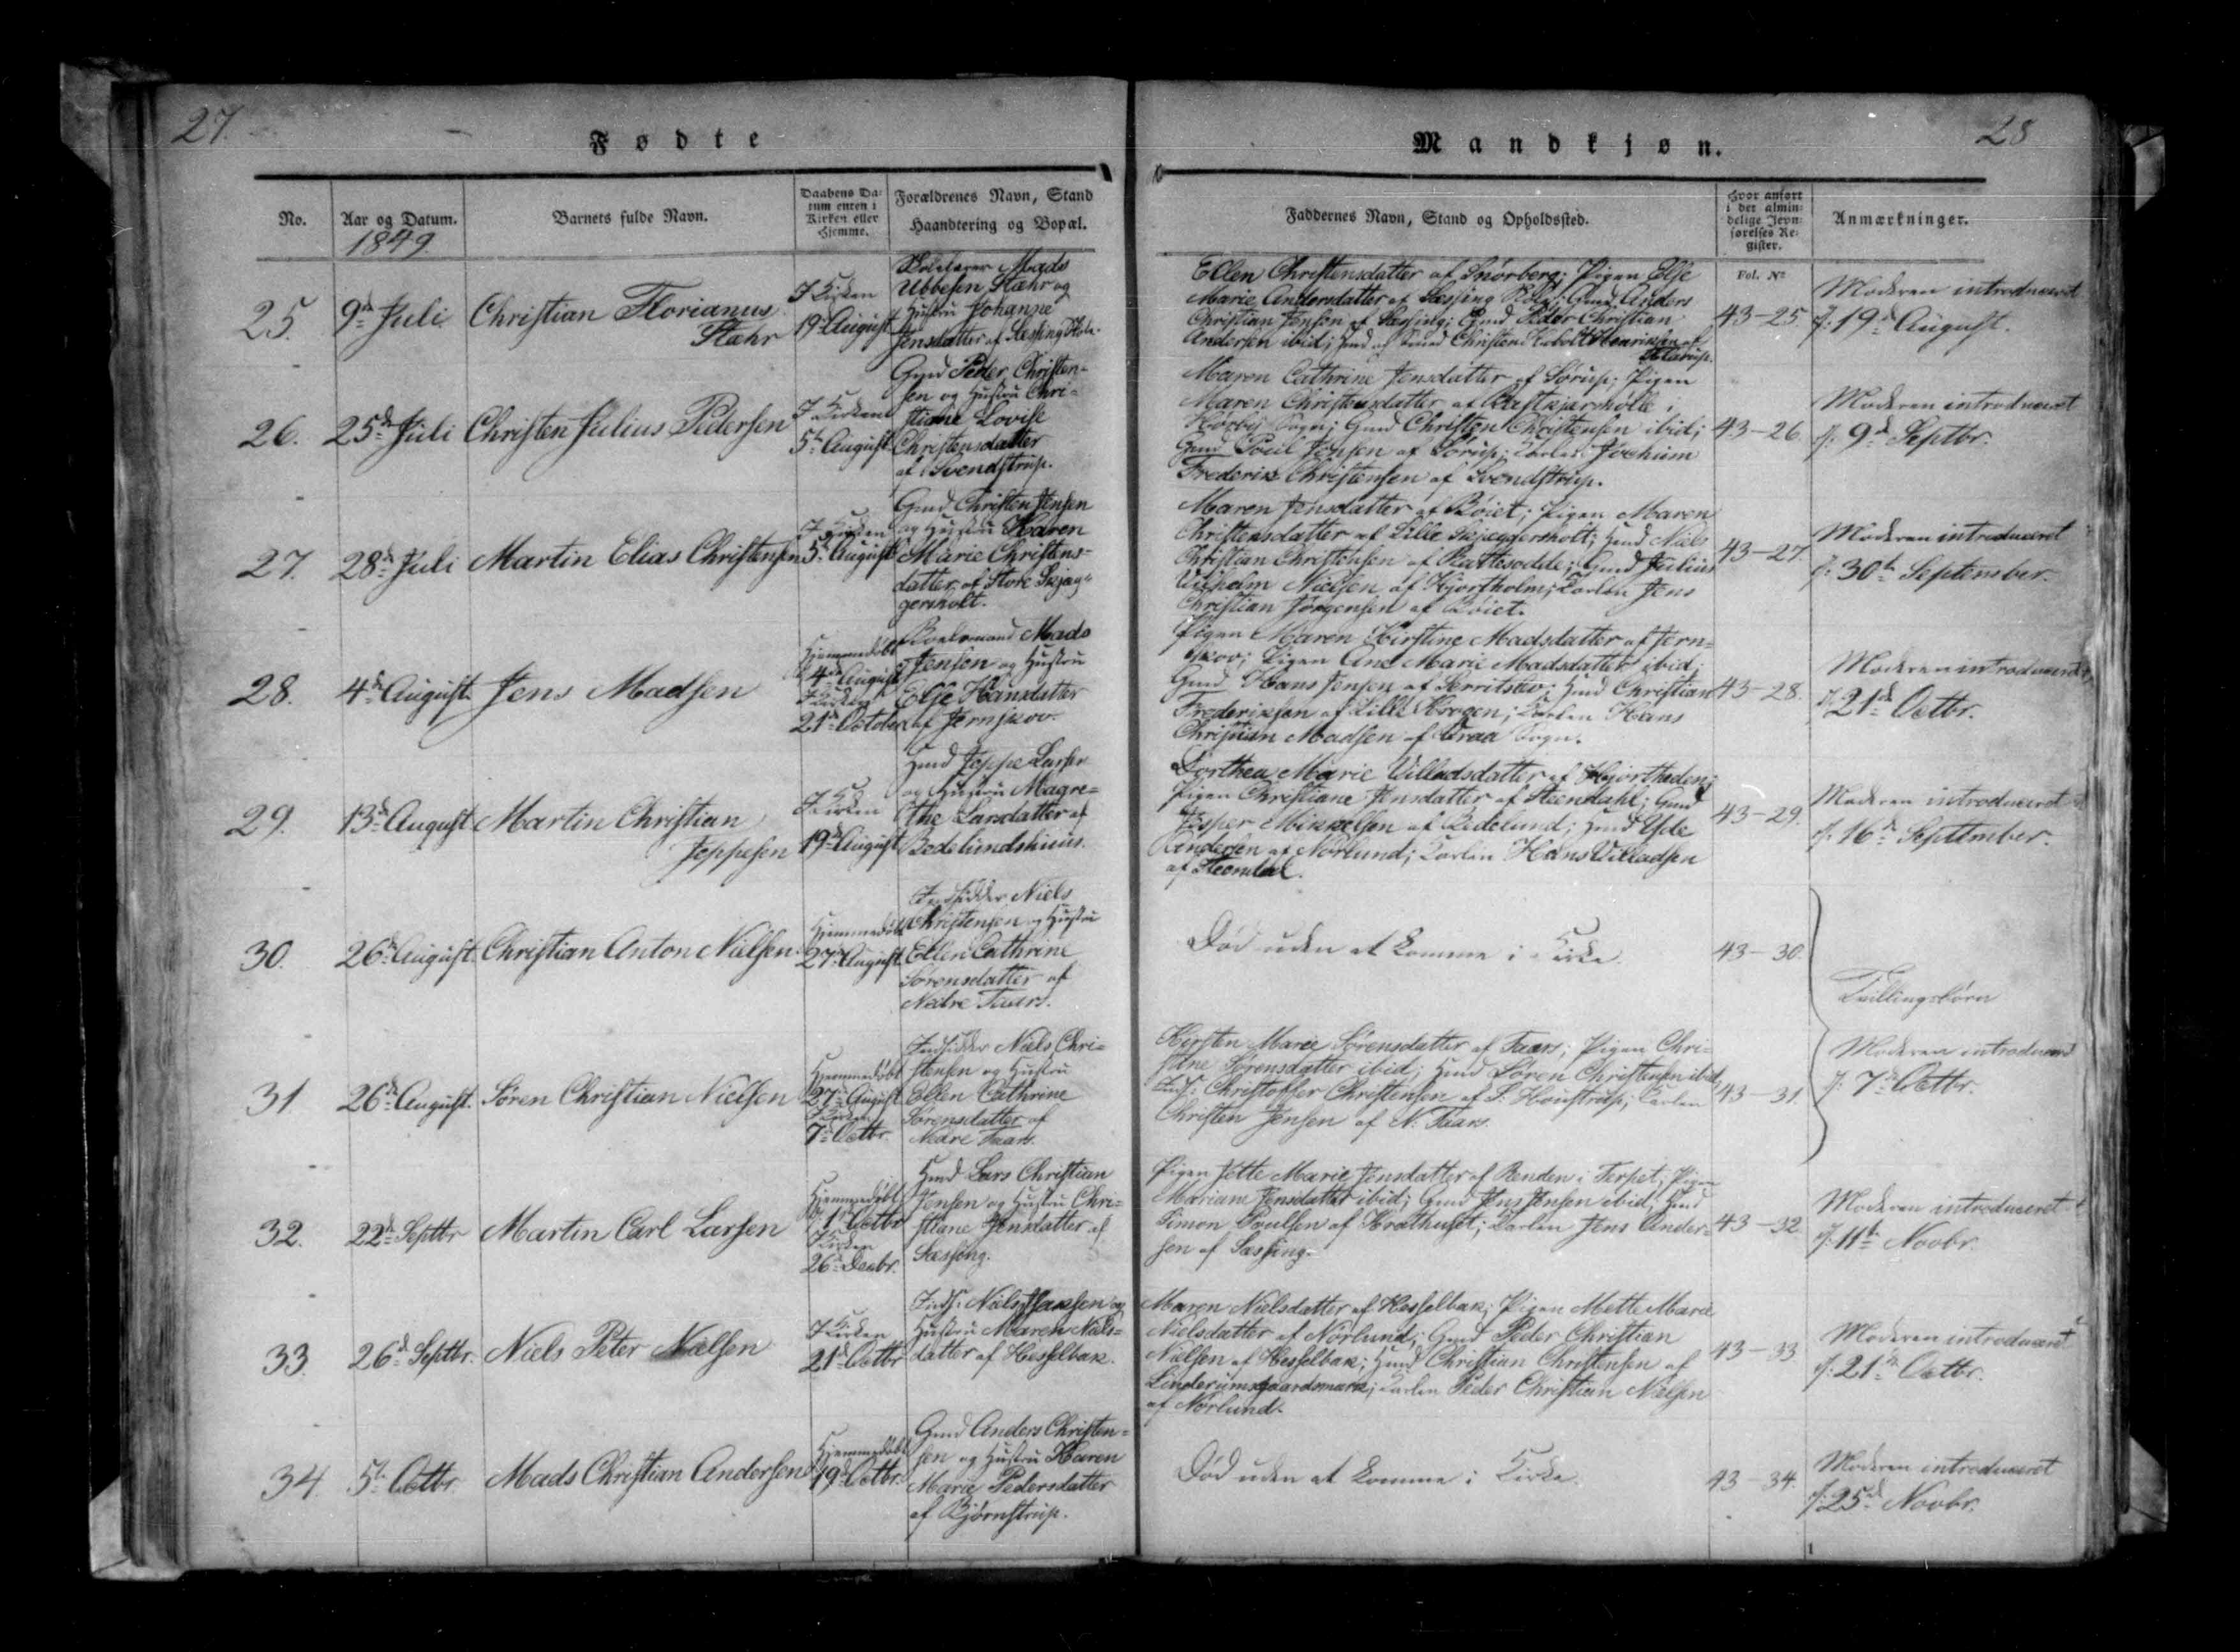 27.
Fødte
No.
Aar og Datum.
1849.
Barnets fulde Navn.
Daabens Da-
tum enten i
Kirken eller
Hjemme.
Forældrenes Navn, Stand
Haandtering og Bopæl.
25.
9de Juli
Christian Florianus
Stæhr
I Kirken
19de August
Mads
Ubbesen Stæhr og
Hustru Johanne
Jensdatter af Sæssing
26.
25de Juli
Christen Julius Pedersen
I Kirken
5te August
Gmd Peder Christen-
sen og Hustru Chri-
stiane Lovise
Christensdatter
af Svendstrup.
27.
28de Juli
Martin Elias Christensen
I Kirken
5te August
Gmd Christen Jensen
og Hustru Karen
Marie Christens-
datter af Store Skjæg-
gersholt.
28.
4de August
Jens Madsen
Hjemmedøbt
4de August
I Kirken
21de October
Boelsmand Mads
Jensen og Hustru
Else Hansdatter
af Jernskov.
29.
13de August
Martin Christian
Jeppesen
I Kirken
19de August
Hmd Jeppe Larsen
og Hustru Magre-
the Larsdatter af
Bedelundshuus.
30.
26de August
Christian Anton Nielsen
Hjemmedøbt
27de August
Indsidder Niels
Christensen og Hustru
Ellen Cathrine
Sørensdatter af
Nedre Taars.
31
26de August.
Søren Christian Nielsen
Hjemmedøbt
27de August
I Kirken
7de Octbr.
Indsidder Niels Chri-
stensen og Hustru
Ellen Cathrine
Sørensdatter af
Nedre Taars.
32.
22de Septbr
Martin Carl Larsen
Hjemmedøbt
1ste Octbr
I Kirken
26de Decbr.
Hmd Lars Christian
Jensen og Hustru Chri-
stiane Jensdatter af
Sæssing.
33.
26de Septbr.
Niels Peter Nielsen
I Kirken
21de Octbr
Inds: Niels og
Hustru Maren Niels-
datter af Hesselbak.
34
5te Octbr.
Mads Christian Andersen
Hjemmedøbt
19de Octbr.
Gmd Anders Christen-
sen og Hustru Karen
Marie Pedersdatter
af Bjørnstrup.
Mandkjøn.
28
Faddernes Navn, Stand og Opholdssted.
Hvor anført
i det almin-
delige Jevn-
førelses Re-
gister.
Anmærkninger.
Fol. No
Ellen Christensdatter af Snorberg; Pigen Else
Marie Andersdatter af Sæssing Gmd Anders
Christian Jensen af Sæssing; Gmd Peder Christian
Andersen ibid; Christen Henriksen af
43-25.
Moderen introduceret
d: 19de August.
Maren Cathrine Jensdatter af Sørup; Pigen
Maren Christensdatter af i
Hørby Sogn; Gmd Christen Christensen ibid;
Gmd Poul Jensen af Sørup; Karlen Jochum
Frederik Christensen af Svendstrup.
43-26.
Moderen introduceret
d: 9de Septbr.
Maren Jensdatter af Røiet; Pigen Maren
Christensdatter af Lille Skjæggersholt; Hmd Niels
Christian Christensen af Gmd Julius
Vilhelm Nielsen af Hjortholm; Karlen Jens
Christian Jørgensen af Røiet.
43-27.
Moderen introduceret
d: 30te September.
Pigen Maren Kirstine Madsdatter af Jern-
skov; Pigen Ane Marie Madsdatter ibid;
Gmd Hans Jensen af Serritslev; Hmd Christian
Frederiksen af Lille Krogen; Karlen Hans
Christian Madsen af Vraa Sogn.
43-28.
Moderen introduceret
d: 21de Octbr.
Dorthea Marie Villadsdatter af Hjortheden;
Pigen Christiane Jensdatter af Steendahl; Gmd
Jesper Mikkelsen af Bedelund; Hmd Yde
Andersen af Nørlund; Karlen Hans Villadsen
af Steendal.
43-29.
Moderen introduceret
d: 16de September.
Død uden at komme i Kirke.
43-30.
Tvillingbørn
Kirsten Marie Sørensdatter af Taars; Pigen Chri-
stine Sørensdatter ibid; Hmd Søren Christensen ibid;
Inds: Christopher Christensen af S: Houstrup; Karlen
Christen Jensen af N: Taars.
43-31.
Moderen introduceret
d: 7de Octbr.
Pigen Jette Marie Jensdatter af Renden i Terpet; Pigen
Mariane Jensdatter ibid; Gmd Jens Jensen ibid; Hmd
Simon Poulsen af Krathuset; Karlen Jens Ander-
sen af Sæssing.
43-32
Moderen introduceret
d: 11te Novbr.
Maren Nielsdatter af Hesselbak; Pigen Mette Marie
Nielsdatter af Nørlund; Gmd Peder Christian
Nielsen af Hesselbak; Hmd Christian Christensen af
Linderumsgaardsmark; Karlen Peder Christian Nielsen
af Nørlund.
43-33
Moderen introduceret
d: 21de Octbr.
Død uden at komme i Kirke.
43-34.
Moderen introduceret
d: 25de Novbr.